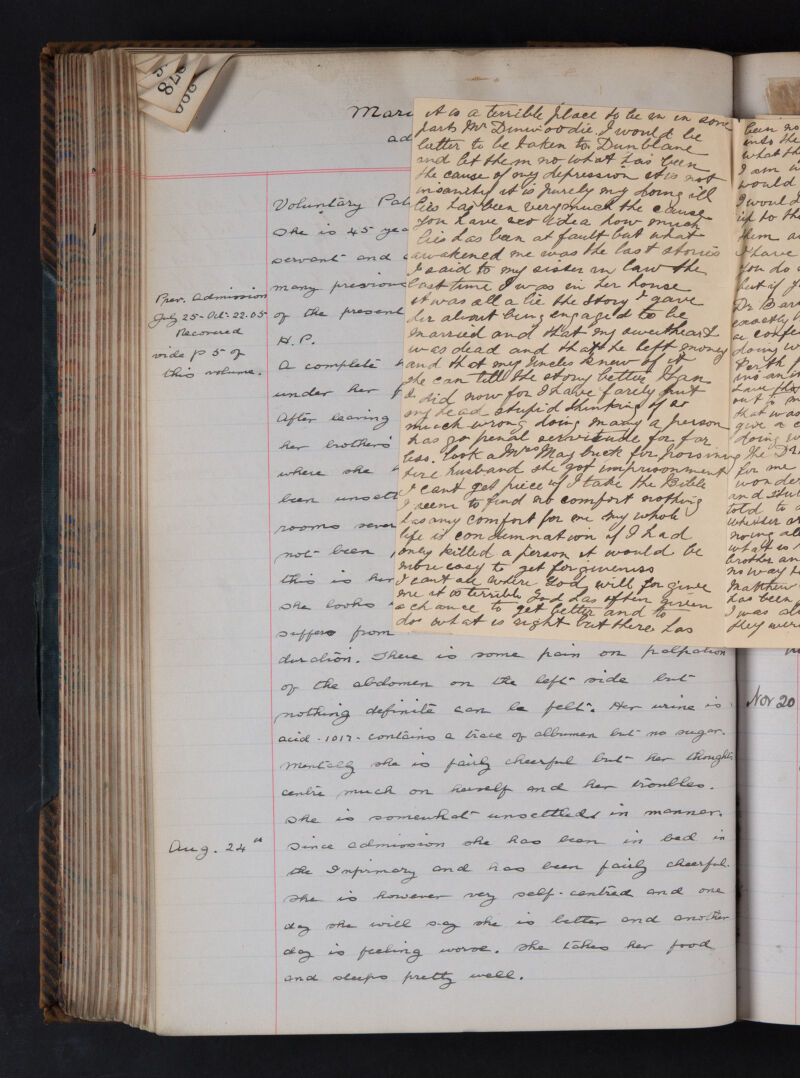 878
Mari
ad
Prev. Admission
July 25 - Oct. 22. 05
Recovered
vide p 5 of
this volume.
Voluntary Pat
She is 45 yea
servant and
many previous
of the present
H.P.
A complete
under her
After leaving
her brother's
where she
been unsett
rooms sever
not been
this is her
She looks
suffers from
duration. There is some pain on palpation
of the abdomen on the left side but
nothing definite can be felt. Her urine is
acid - 1017 - contains a trace of albumen but no sugar.
Mentally she is fairly cheerful but her thoughts
centre much on herself and her troubles.
She is somewhat unsettled in manner.
Aug. 24th
Since admission she has been in bed in
the Infirmary and has been fairly cheerful.
She is however very self-centred and one
day she will say she is better and another
day is feeling worse. She takes her food
and sleeps pretty well.
it is a terrible place to be in in some
parts Mr Dinwoodie. I would be
better to be taken to Dunblane
and let them no what has been
the cause of my depression it is not
insanity it is purely my doing ill
lies has been very much the cause
You have no idea how much
lies has been at fault but what
awakened me was the last stories
I said to my sister in law the
last time I was in her house
it was all a lie the story I gave
her about being engaged to be
married and that my sweetheart
was dead and that he left money
and that my Uncles knew of it
she can tell the story better than
I did now for I have farely put
my head stupid thinking of so
much wrong doing many a person
has go penal servitude for far
less. look a Mrs May buck for poisoning
her husband she got imprisonment
I cant get piece if I take the Bible
I seem to find no comfort nothing
has any comfort for me my whole
life is condemnation if I had
only killed a person it would be
more easy to get forgiveness
I cant see where God will forgive
me it is terrible God has often given
a chance to get better and to
do what is right but there has
been no
into the
what th
I am
would
I would
up to the
them a
I have
You do
but if y
Dr Bar
exactly
a confe
doing w
Perth
ins an
have the
out
that was
give a c
doing w
the Dr
for me
wonde
and
told to
whether or
nowing all
what is
brother an
no way t
Matthew
has been
I was al
they were
Nov 20